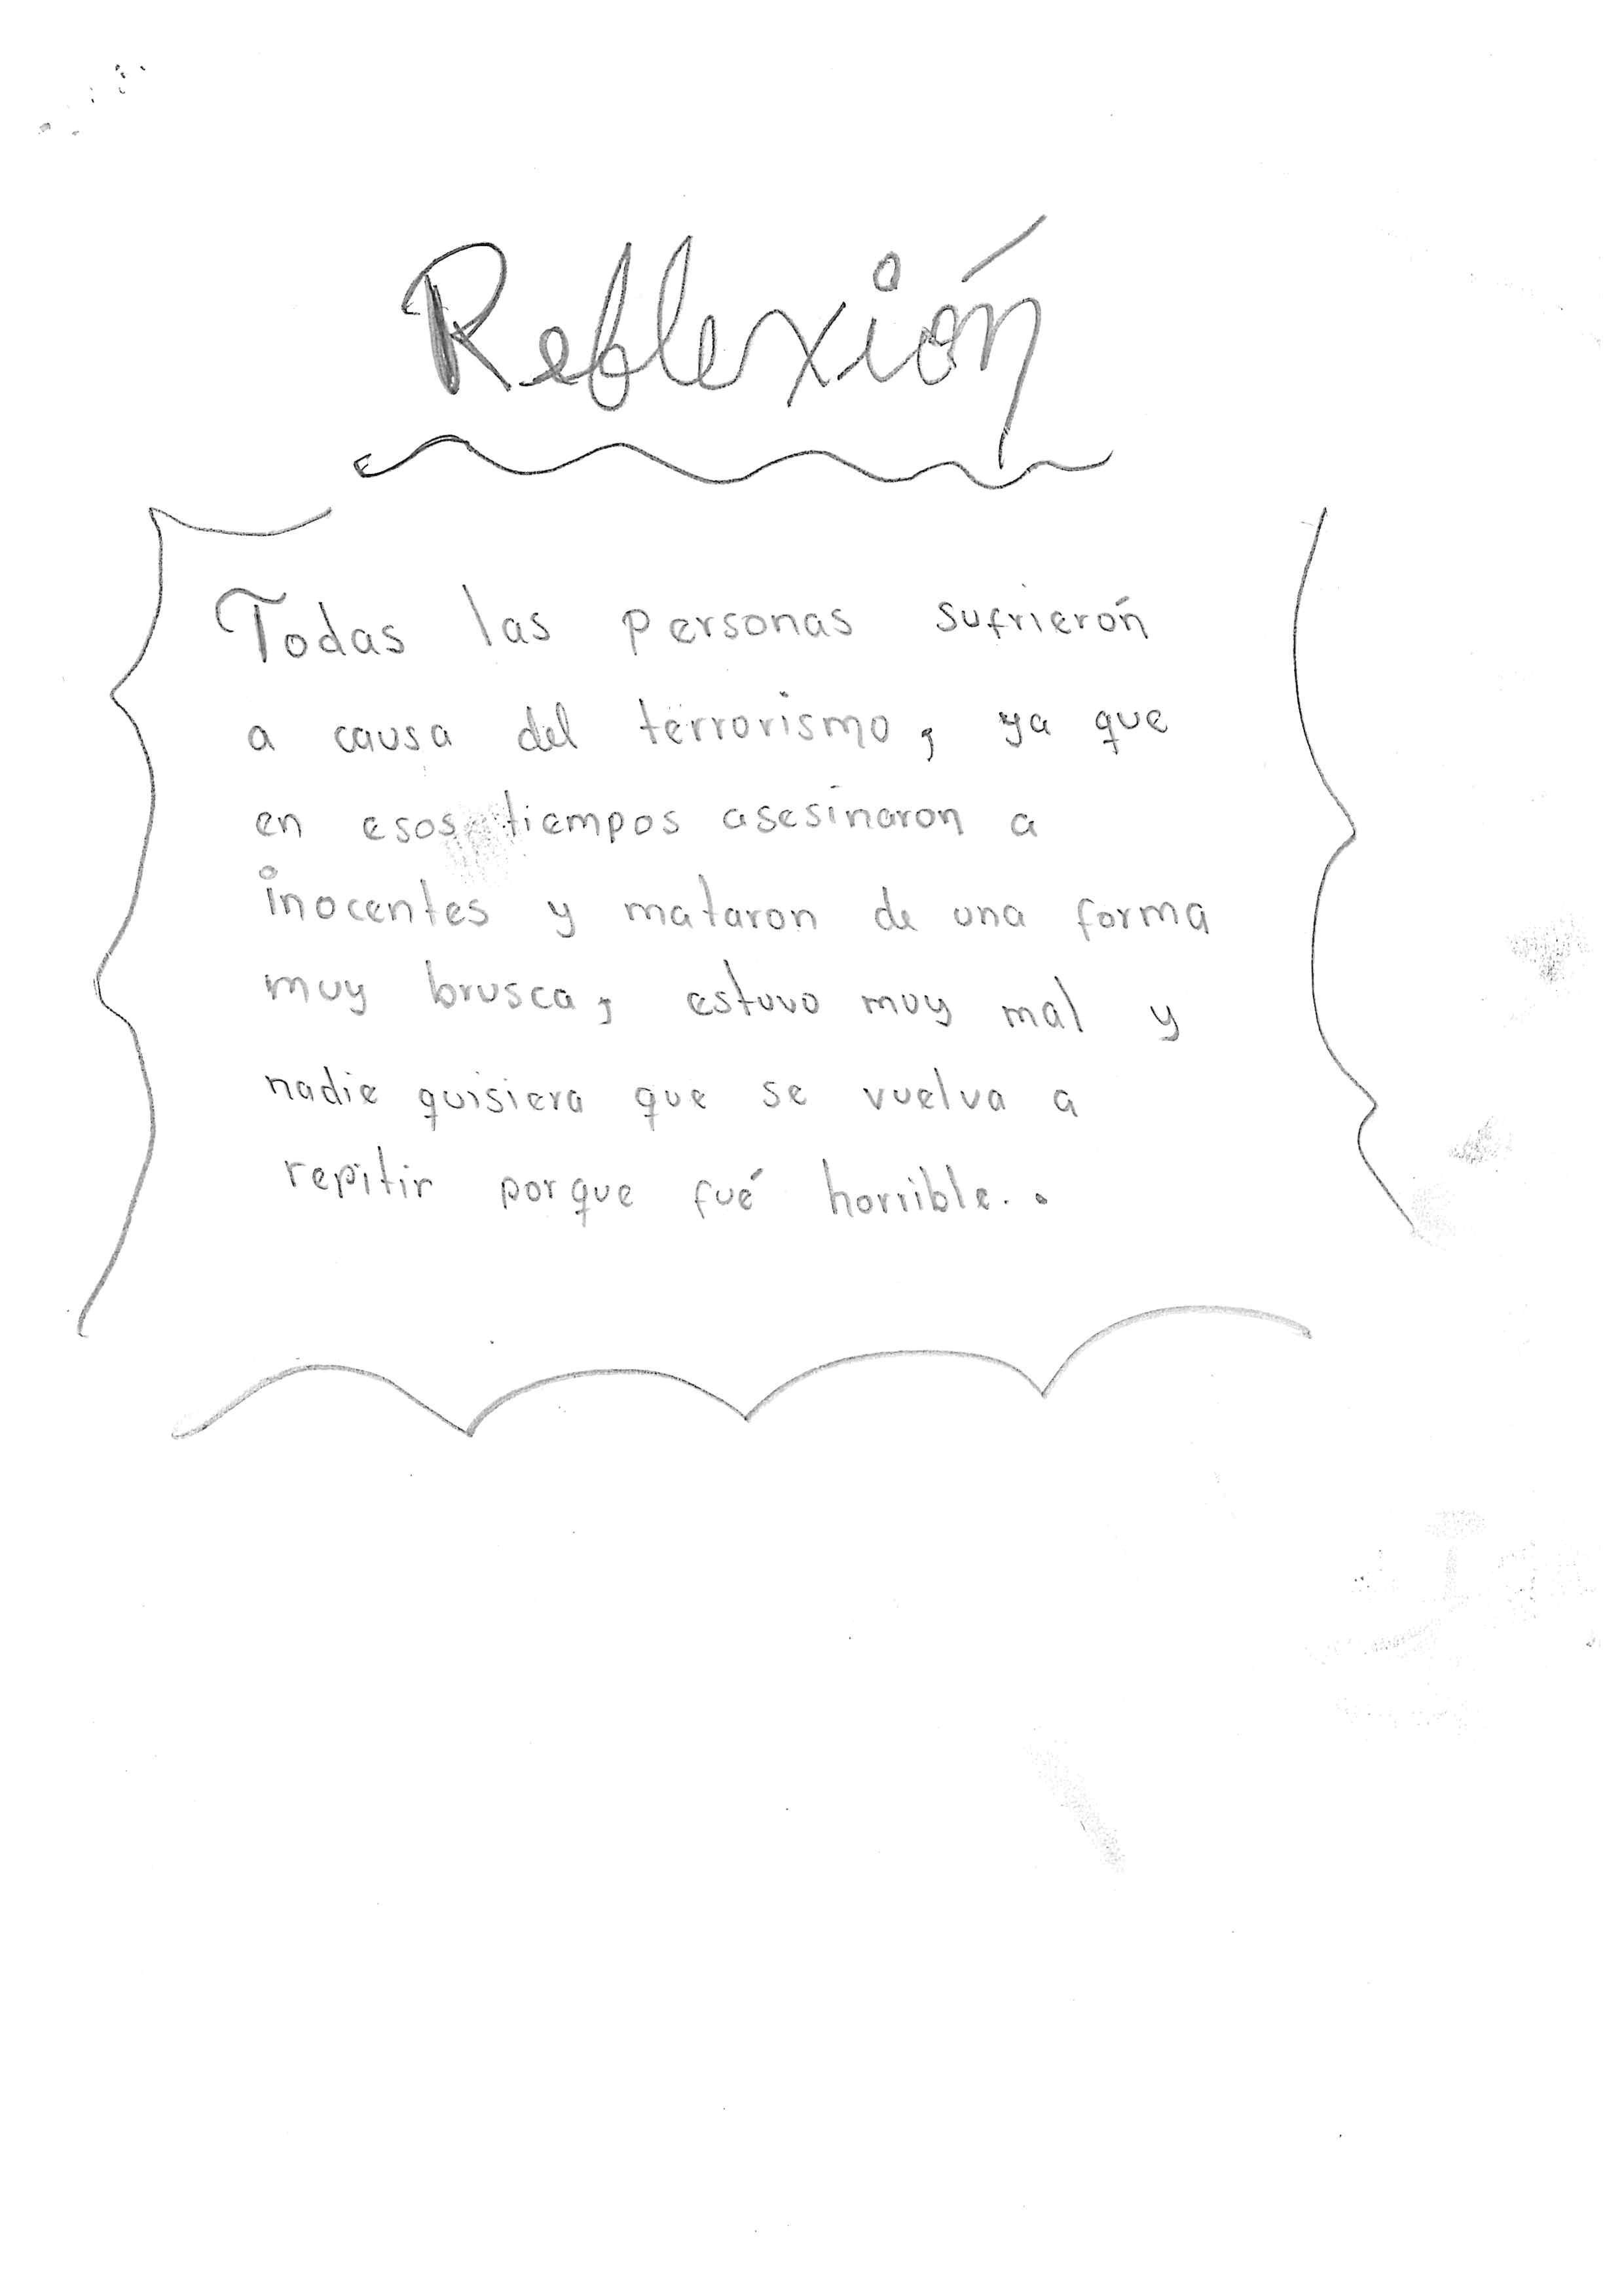 Reflexión
Todas las personas sufrierón
a causa del terrorismo, ya que
en esos tiempos asesinaron a
inocentes y mataron de una forma
muy brusca, estuvo muy mal y
nadie quisiera que se vuelva a
repitir porque fué horrible..